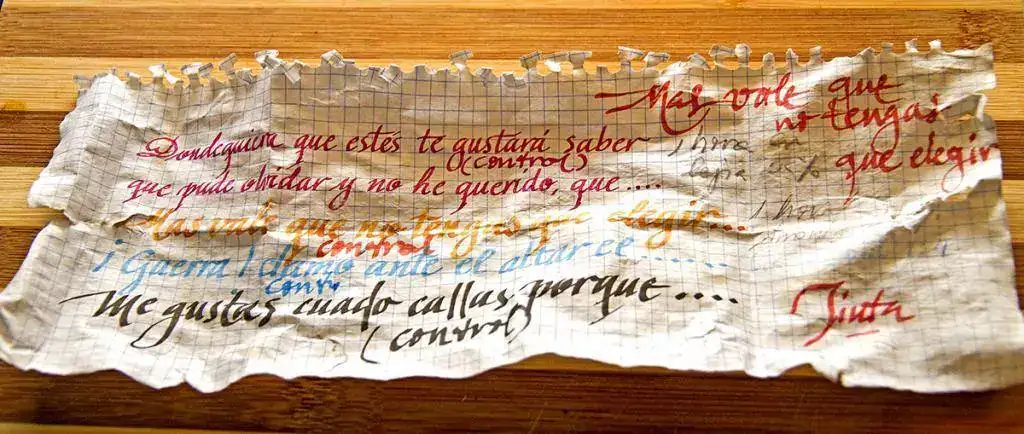 Mas vale que
no tengas
que elegir
Dondequiera que estés te gustará saber
(control)
que pude olvidar y no he querido, que ....
1 hora en
Mas vale que no tengas que elegir...
1 hora
control
¡Guerra! clamo ante el altar el ......
Contr
Me gustas cuado callas, porque ....
(control)
Tinta